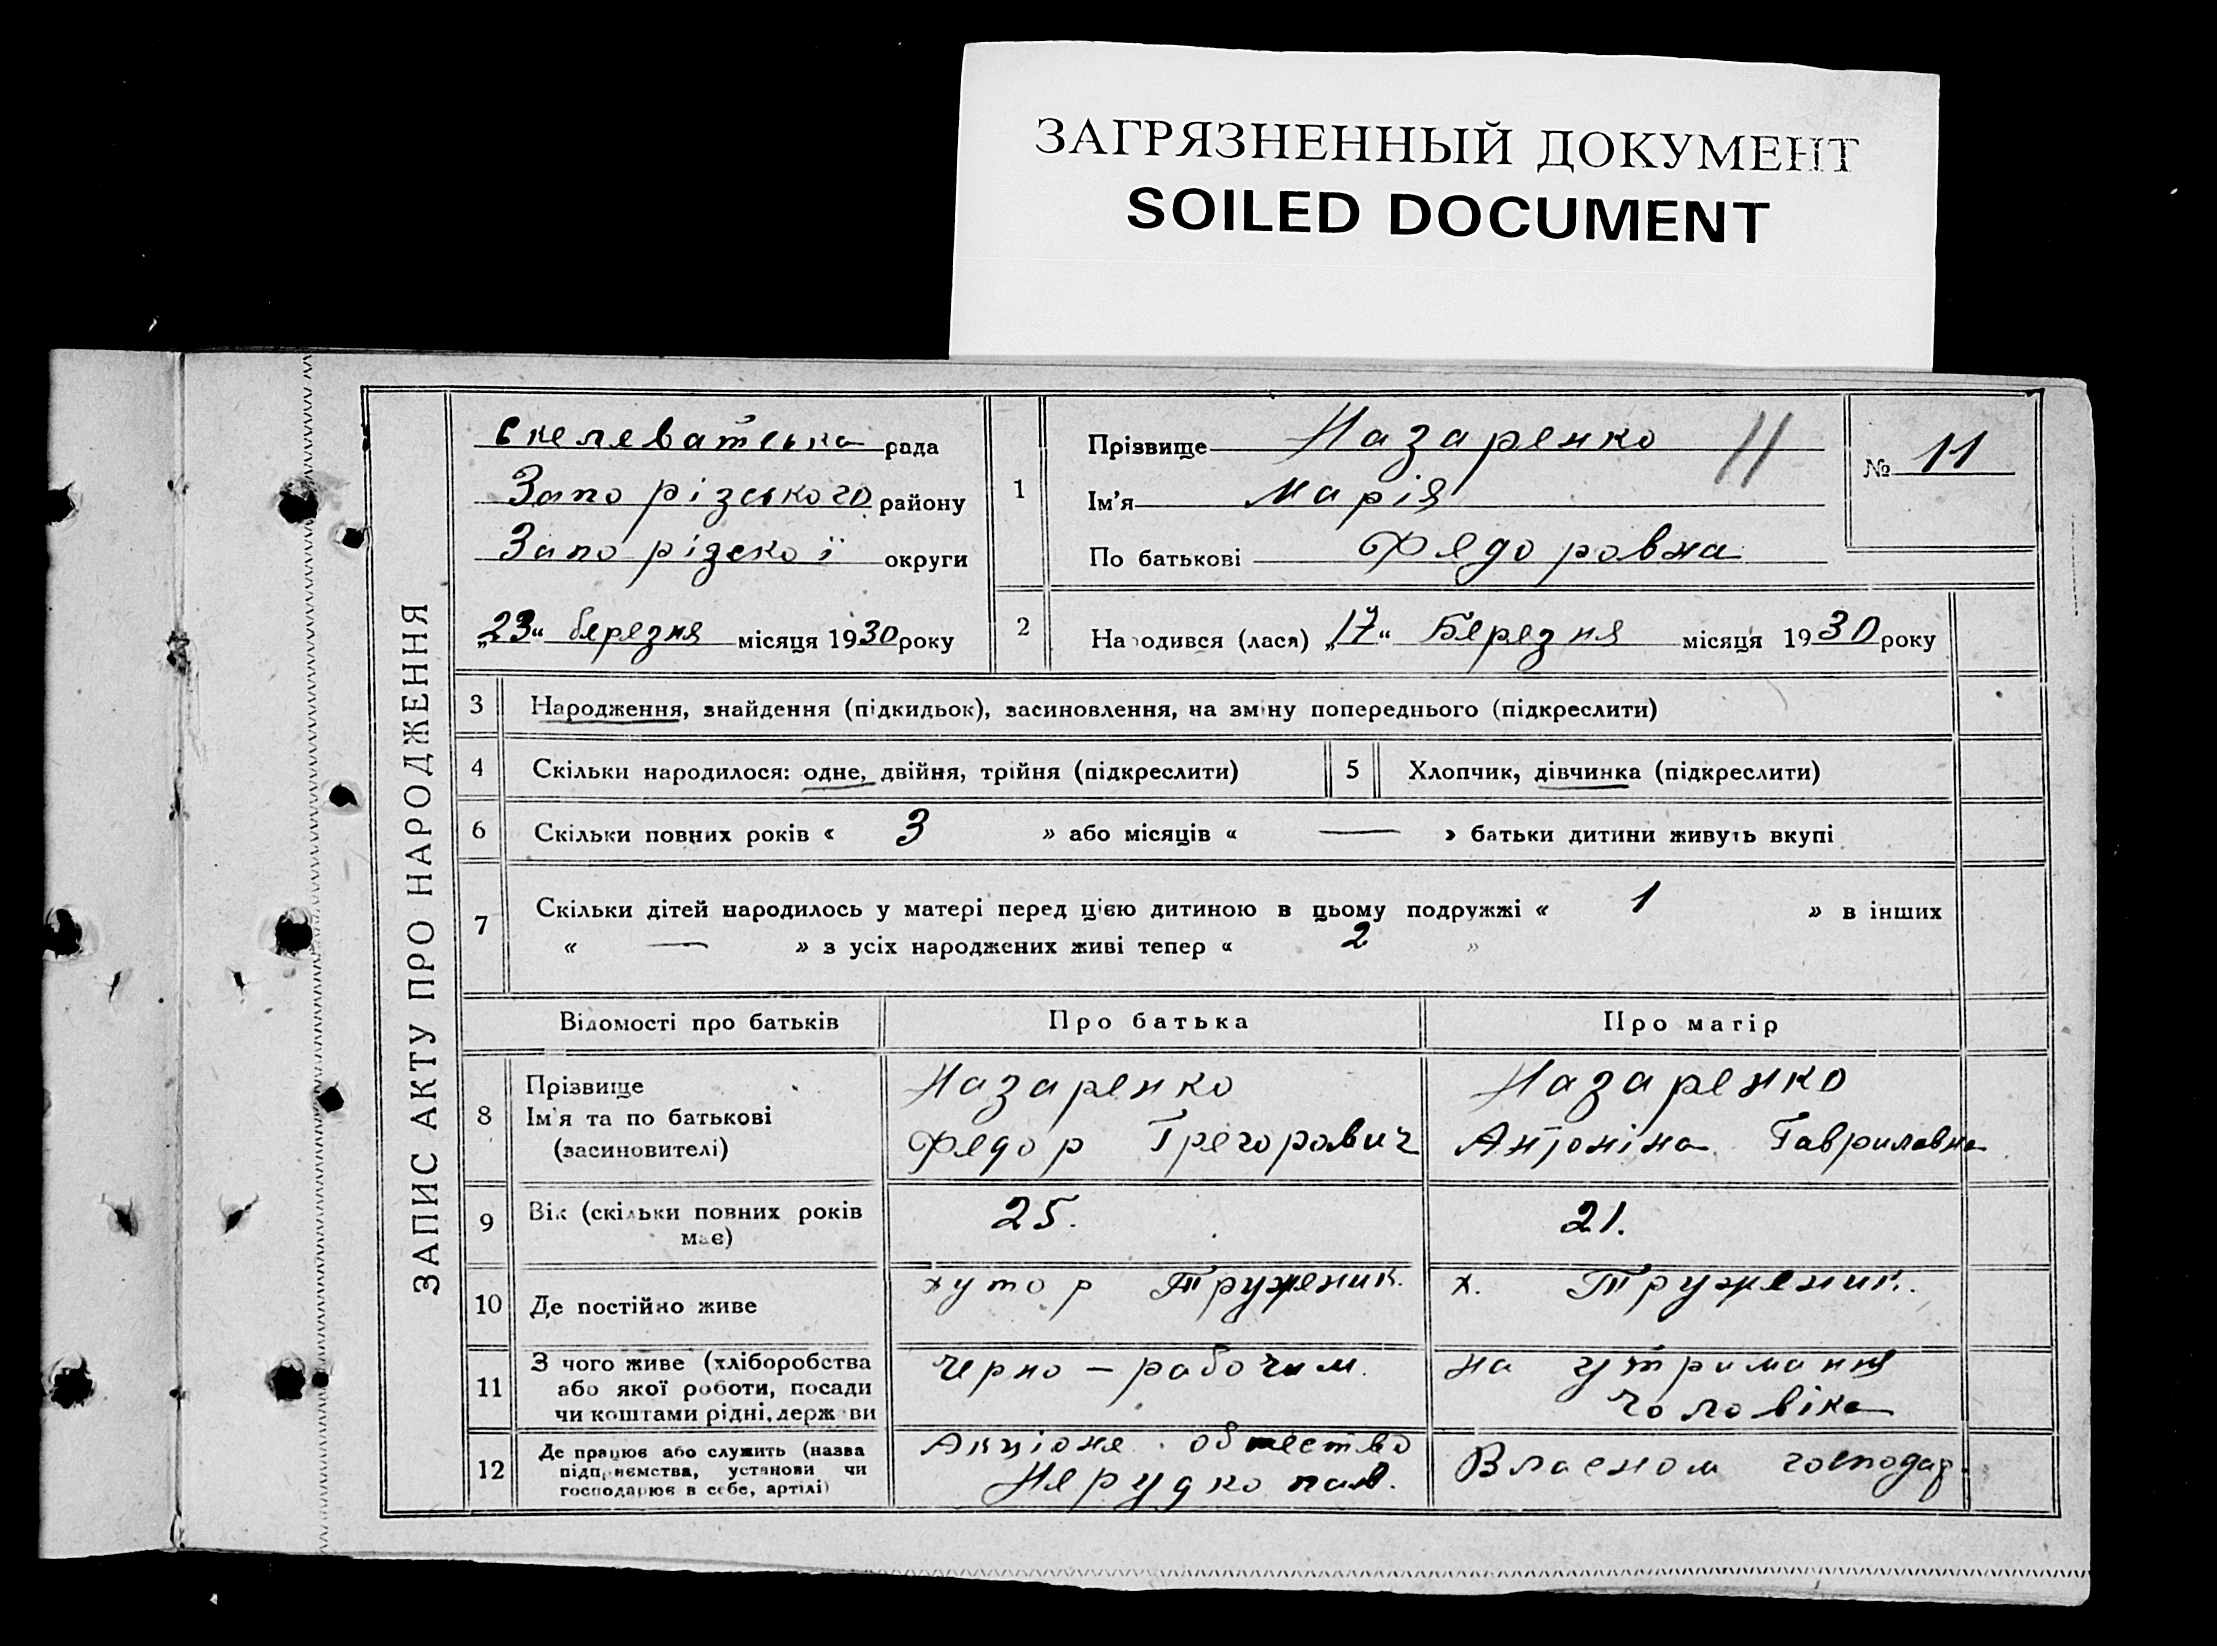 ЗАГРЯЗНЕННЫЙ ДОКУМЕНТ
SOILED DOCUMENT
ЗАПИС АКТУ ПРО НАРОДЖЕННЯ
Скелеватська рада
Запорізського району
Запорізскої округи
„23“ березня місяця 1930 року
1 Прізвище Назаренко 11
Ім'я Марія
По батькові Федоровна
№ 11
2 Народився (лася) „17“ Березня місяця 1930 року
3 Народження, знайдення (підкидьок), засиновлення, на зміну попереднього (підкреслити)
4 Скільки народилося: одне, двійня, трійня (підкреслити)
5 Хлопчик, дівчинка (підкреслити)
6 Скільки повних років « 3 » або місяців « — » батьки дитини живуть вкупі
7 Скільки дітей народилось у матері перед цією дитиною в цьому подружжі « 1 » в інших
« — » з усіх народжених живі тепер « 2 »
Відомості про батьків Про батька Про матір
8 Прізвище
Ім'я та по батькові
(засиновителі)
Назаренко
Федор Грегорович
Назаренко
Антоніна Гавриловна
9 Вік (скільки повних років
має)
25.
21.
10 Де постійно живе
хутор Труженик.
х. Труженик.
11 З чого живе (хліборобства
або якої роботи, посади
чи коштами рідні, держави
черно – рабочим.
на утримання
чоловіка
12 Де працює або служить (назва
підприємства, установи чи
господарює в себе, артілі)
Акціоне общество
Нерудкопав.
Власном господар.